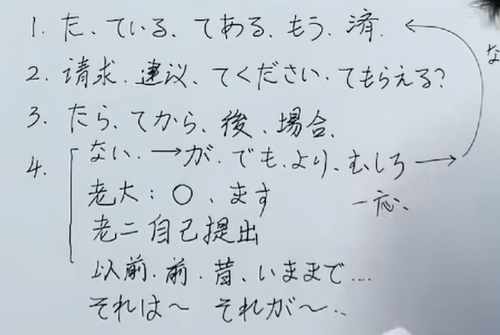 1. た、ている、てある、もう、済、
な
2. 请求、建议、てください、てもらえる?
3. たら、てから、後、場合、
4. ない、→が、でも、より、むしろ→
老大:○、ます
一応、
老二自己提出
以前、前、昔、いままで...
それは～ それが～..